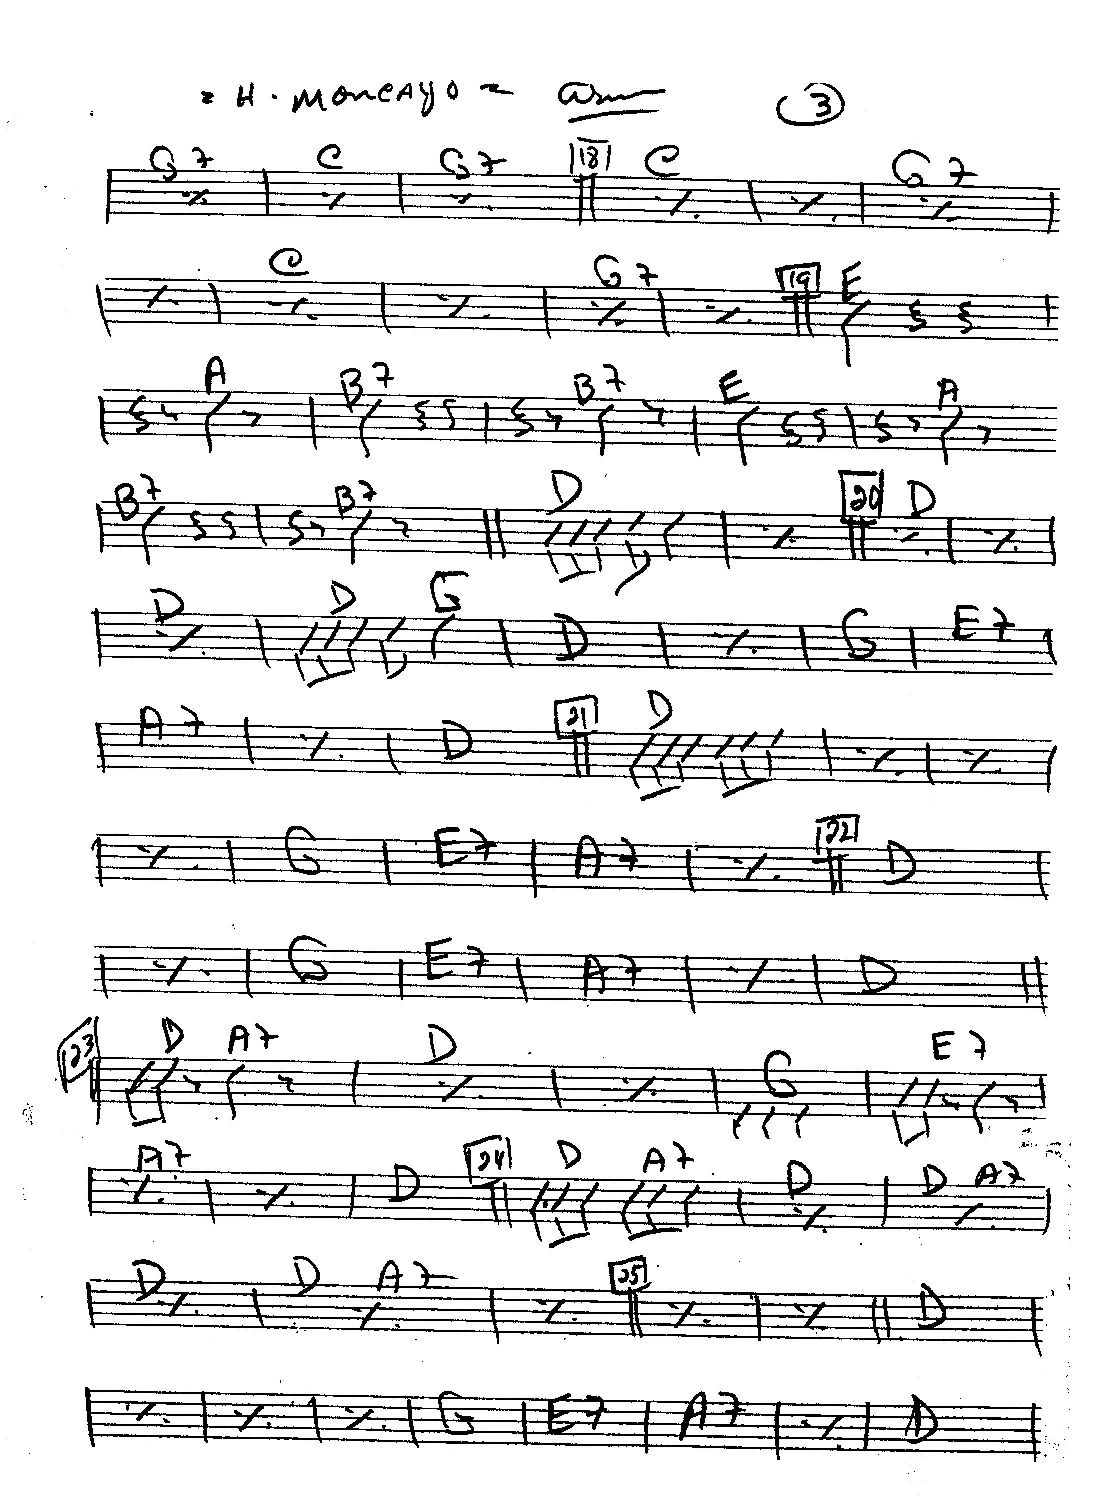 = H. MONCAYO =  3
G7 C G7 18 C G7
C G7 19 E
A B7 B7 E A
B7 B7 D 20 D
D D G D G E7
A7 D 21 D
G E7 A7 22 D
G E7 A7 D
23 D A7 D G E7
A7 D 24 D A7 D D A7
D D A7 25 D
G E7 A7 D